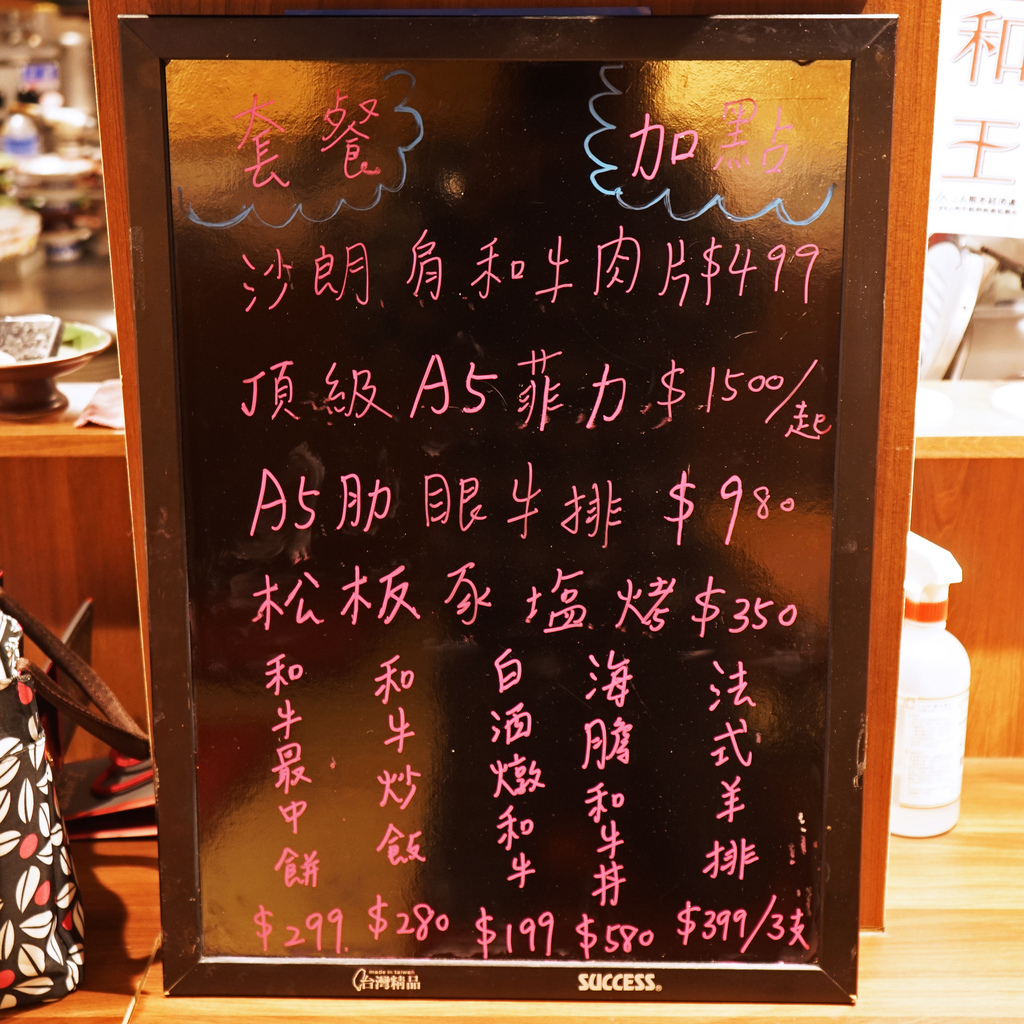 套餐
加點
沙朗肩和牛肉片$499
頂級A5菲力$1500/起
A5肋眼牛排 $980
松板豕塩烤$350
和牛最中餅
$299
和牛炒飯
$280
白酒燉和牛
$199
海膽和牛丼
$580
法式羊排
$399/3支
made in taiwan
台灣精品
SUCCESS®
和王